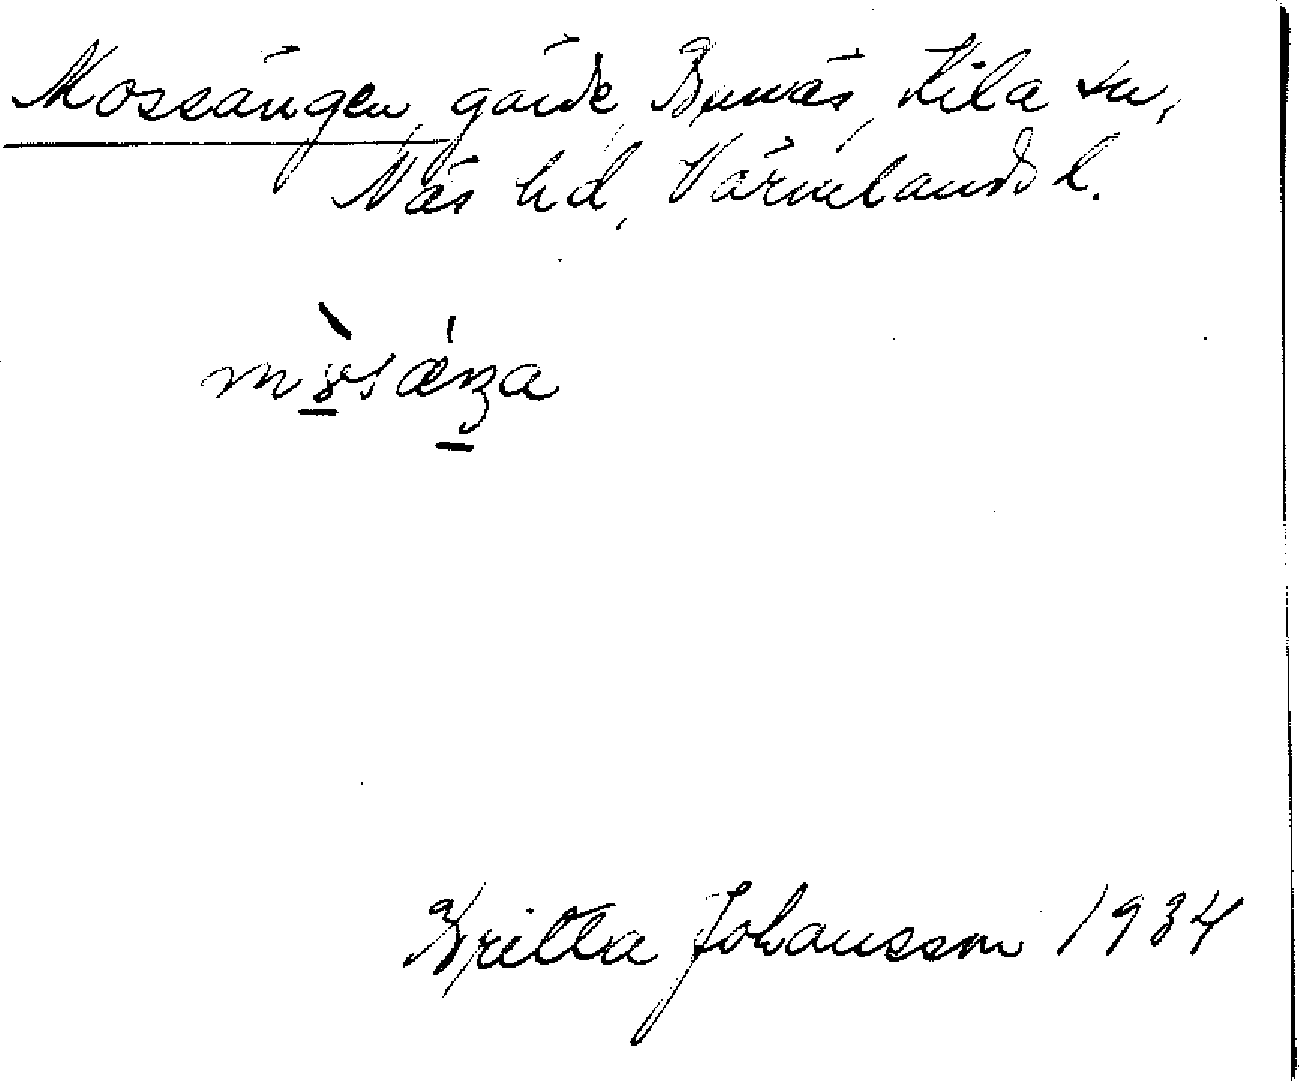 Mossängen, gärde, Bynäs, Kila sn,
Näs hd, Värmlands l.
mòsǽŋa
Britta Johansson 1934